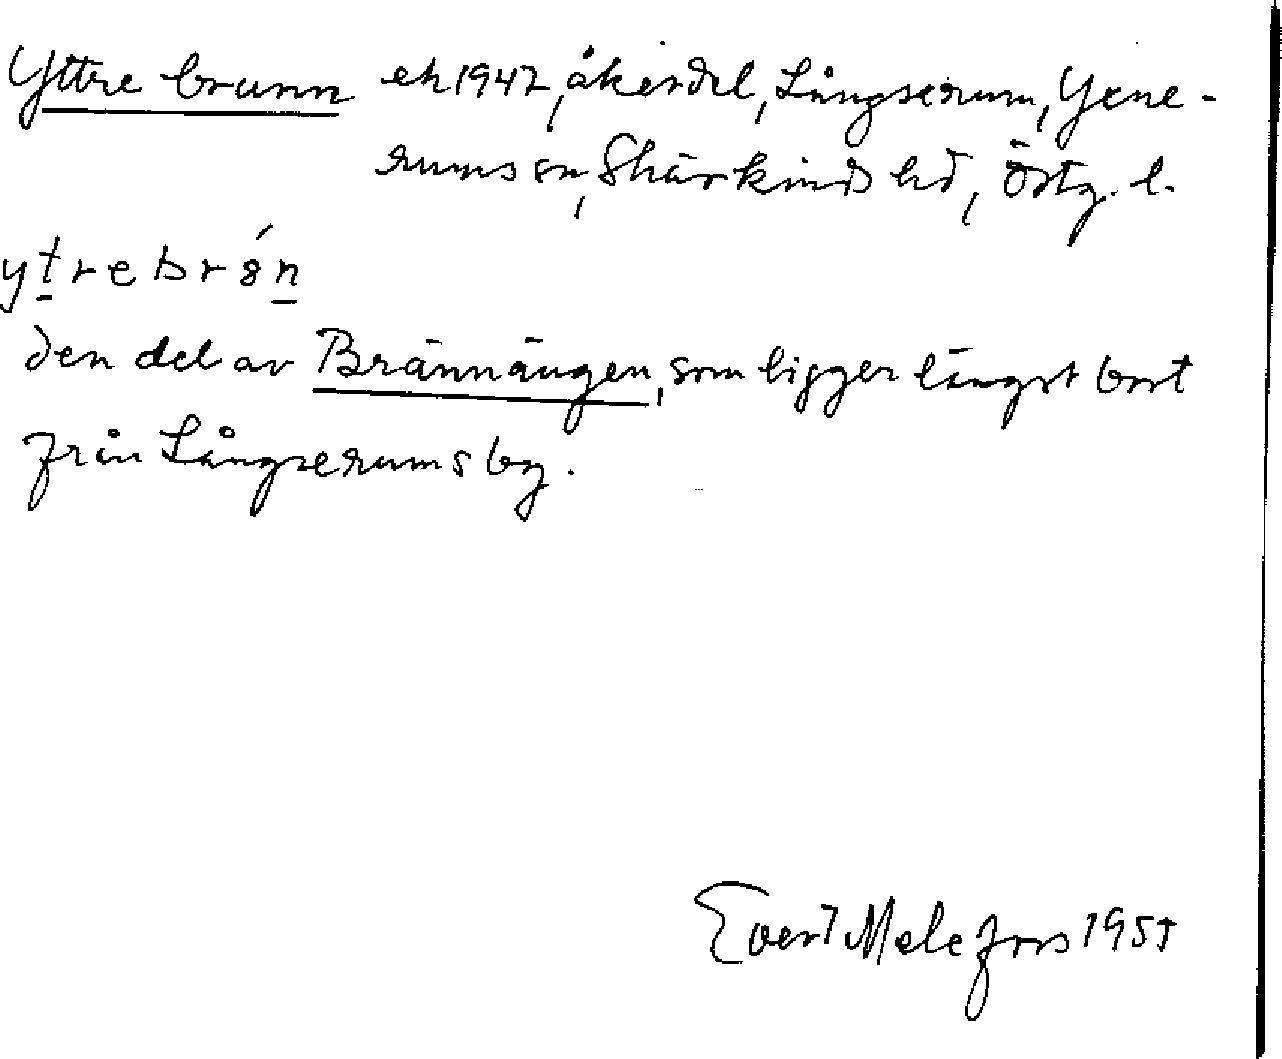 Yttre brunn ek 1947, åkerdel, Långserum, Yxne-
rums sn, Skärkinds hd, Östg. l.
ytrebrǿn
den del av Brännängen, som ligger längst bort
från Långserums by.
Evert Melefors 1955